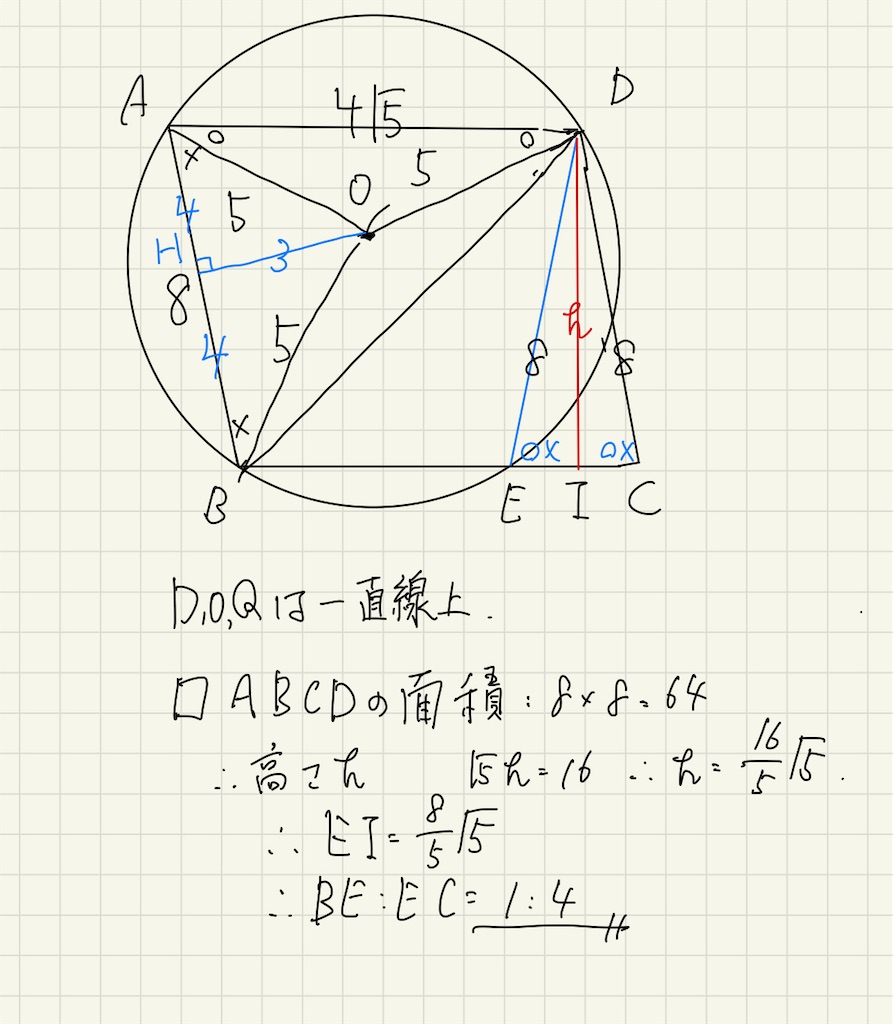 A
4√5
D
○
○
×
5
O
5
4
H
3
8
4
5
h
8
8
×
○×
○×
B
E
I
C
D,O,Qは一直線上.
□ABCDの面積:8×8=64
∴高さh √5h=16 ∴h=16/5√5.
∴EI=8/5√5
∴BE:EC=1:4